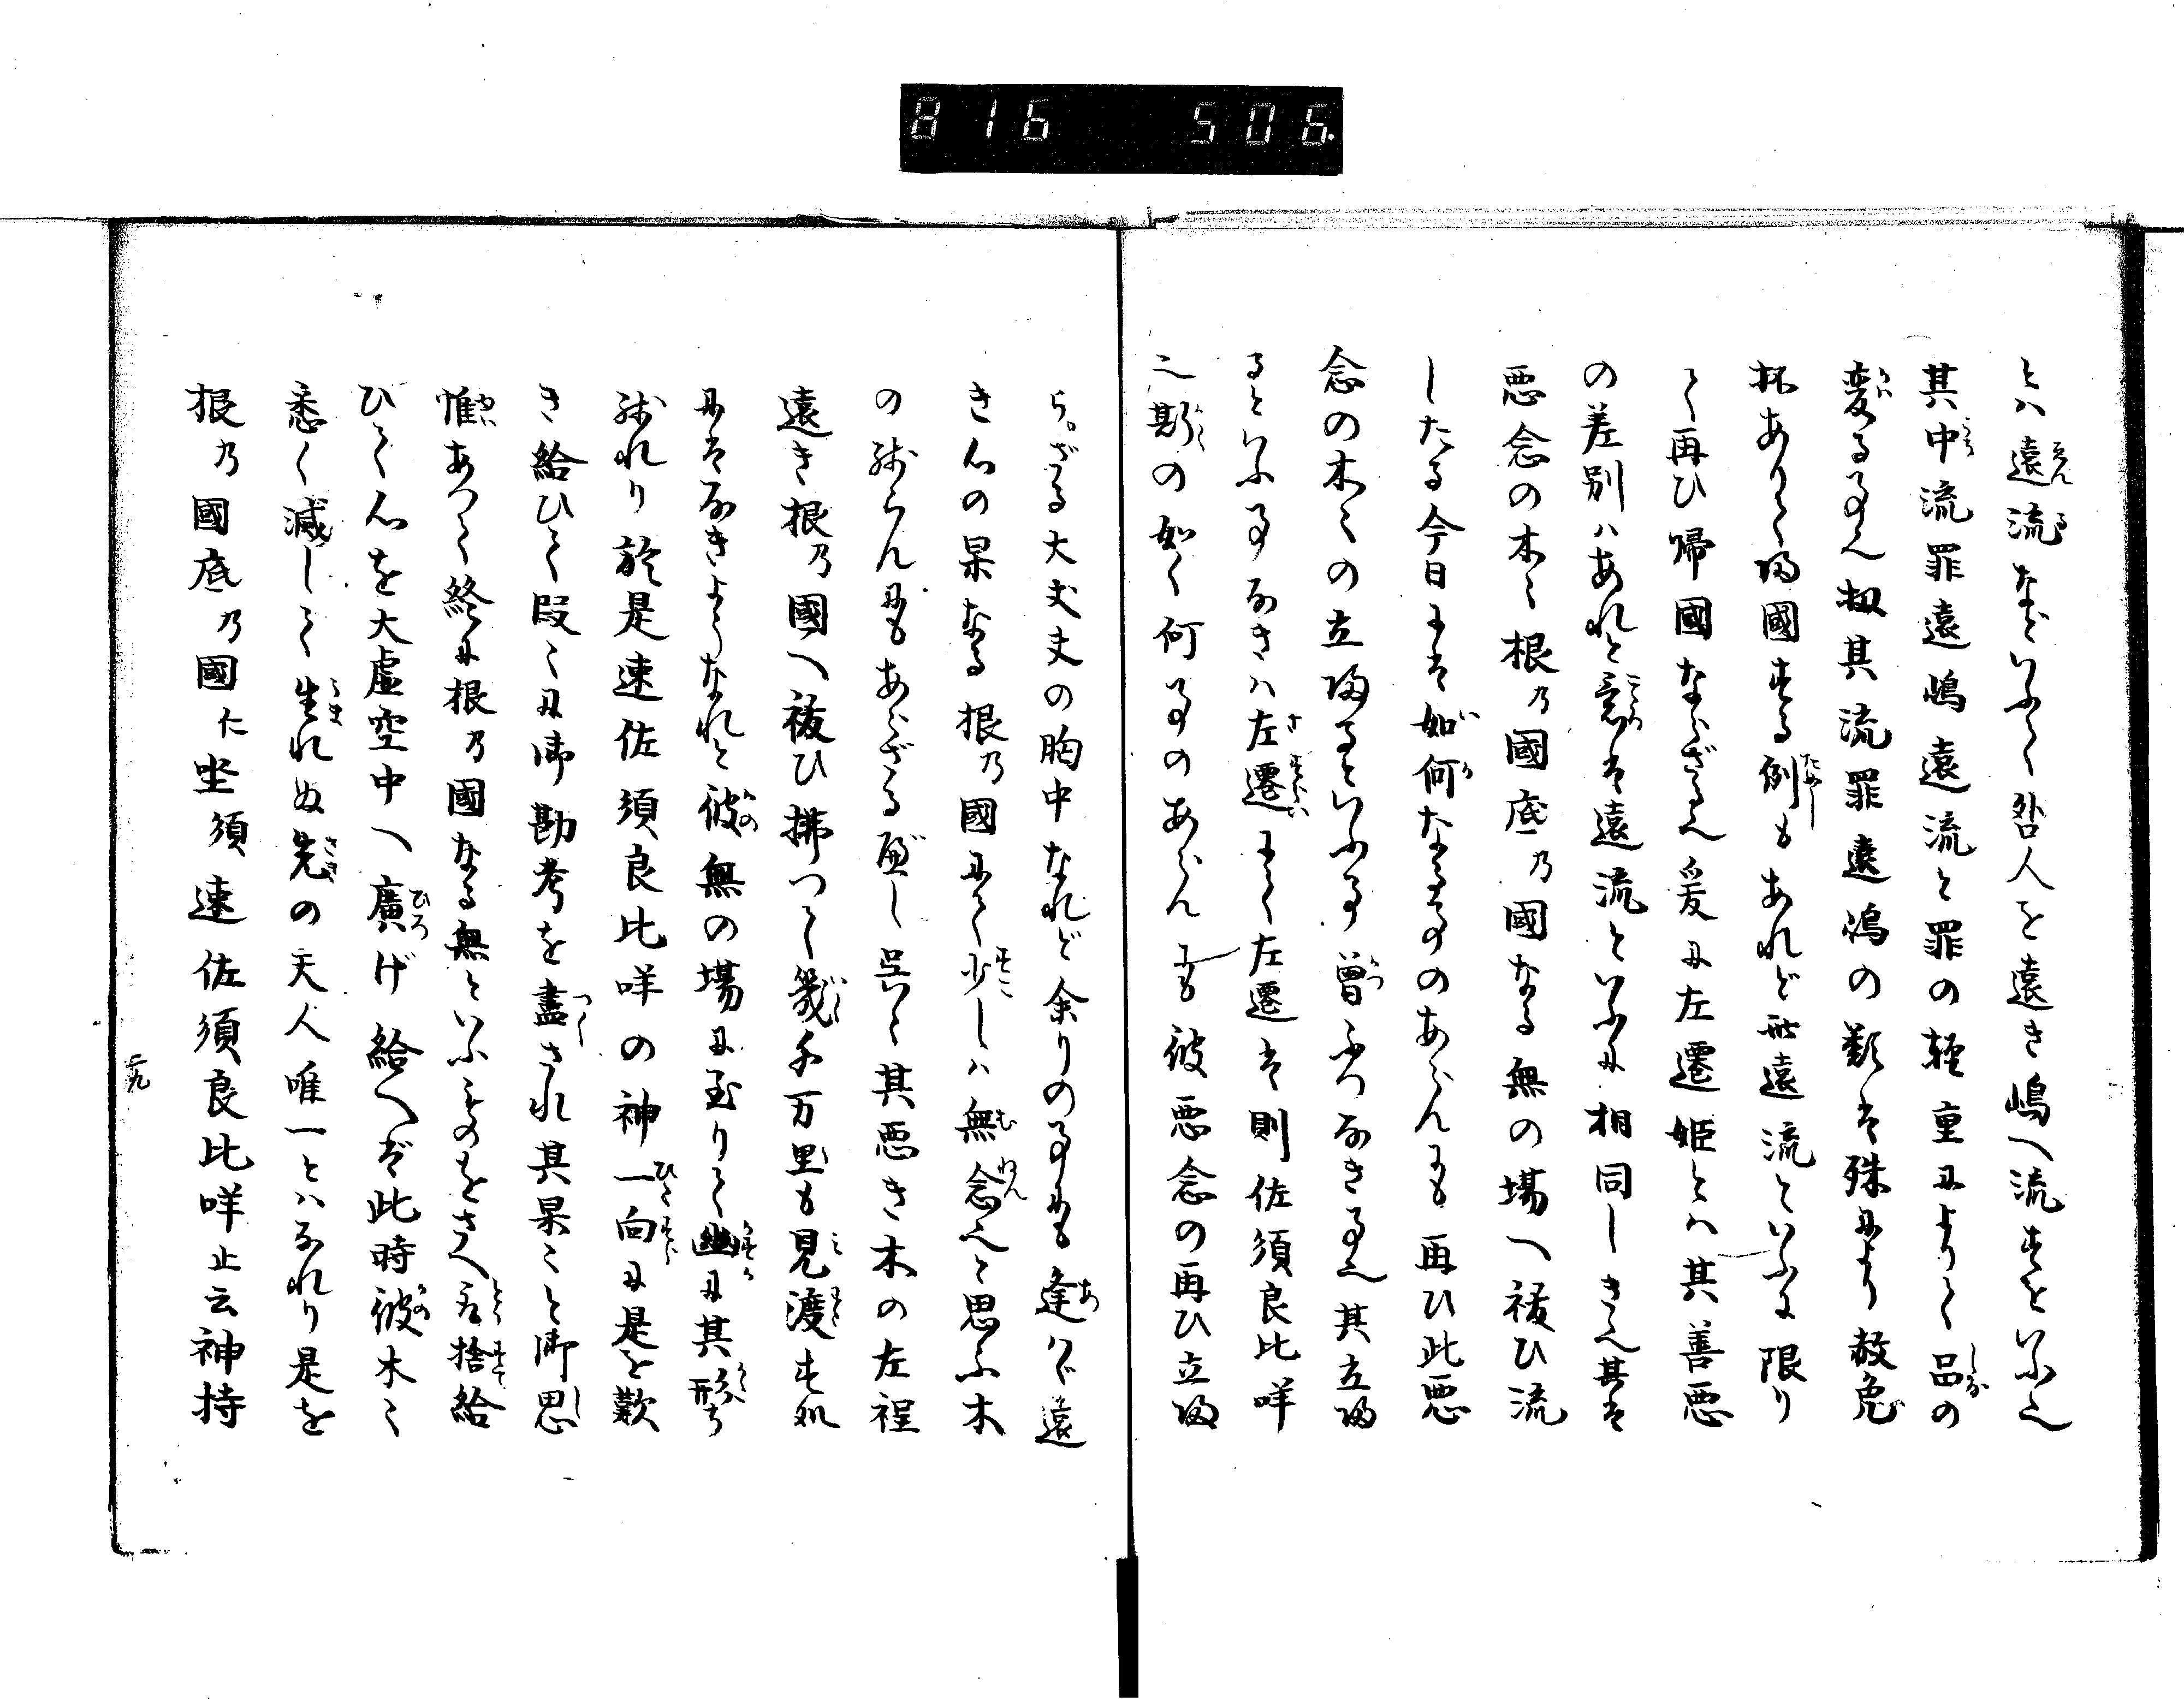 816 506.
とハ遠流などいふて咎人を遠き嶋へ流すをいふ也
其中流罪遠嶋遠流と罪の軽重によりて品の
変る事也扨其流罪遠嶋の類は殊により赦免
抔ありて帰國する例もあれど此遠流といふは限り
て再ひ帰國ならざる也爰に左遷姫とハ其善悪
の差別ハあれと意は遠流といふに相同しき也其は
悪念の木々根乃國底乃國なる無の場へ祓ひ流
したる今日には如何なる事のあらんにも再ひ此悪
念の木々の立帰るといふ事曽てなき事也其立帰
るといふ事なきハ左遷にて左遷は則佐須良比咩
之斯の如く何事のあらんにも彼悪念の再ひ立帰
らざる大丈夫の胸中なれど余りの事にも逢ハゞ遠
き心の杲なる根乃國にて少しハ無念也と思ふ木
の残らんにもあらざるべし呉々其悪き木の左程
遠き根乃國へ祓ひ拂つて幾千万里も見渡す処
にはなきようなれと彼無の場に至りて幽に其形ち
残れり於是速佐須良比咩の神一向に是を歎
き給ひて段々に御勘考を盡され其杲こと御思
惟あつて終に根乃國なる無といふものをさへ取捨給
ひて心を大虚空中へ廣げ給へば此時彼木々
悉く減して生れぬ先の天人唯一とハなれり是を
根乃國底乃國仁坐須速佐須良比咩止云神持
二九